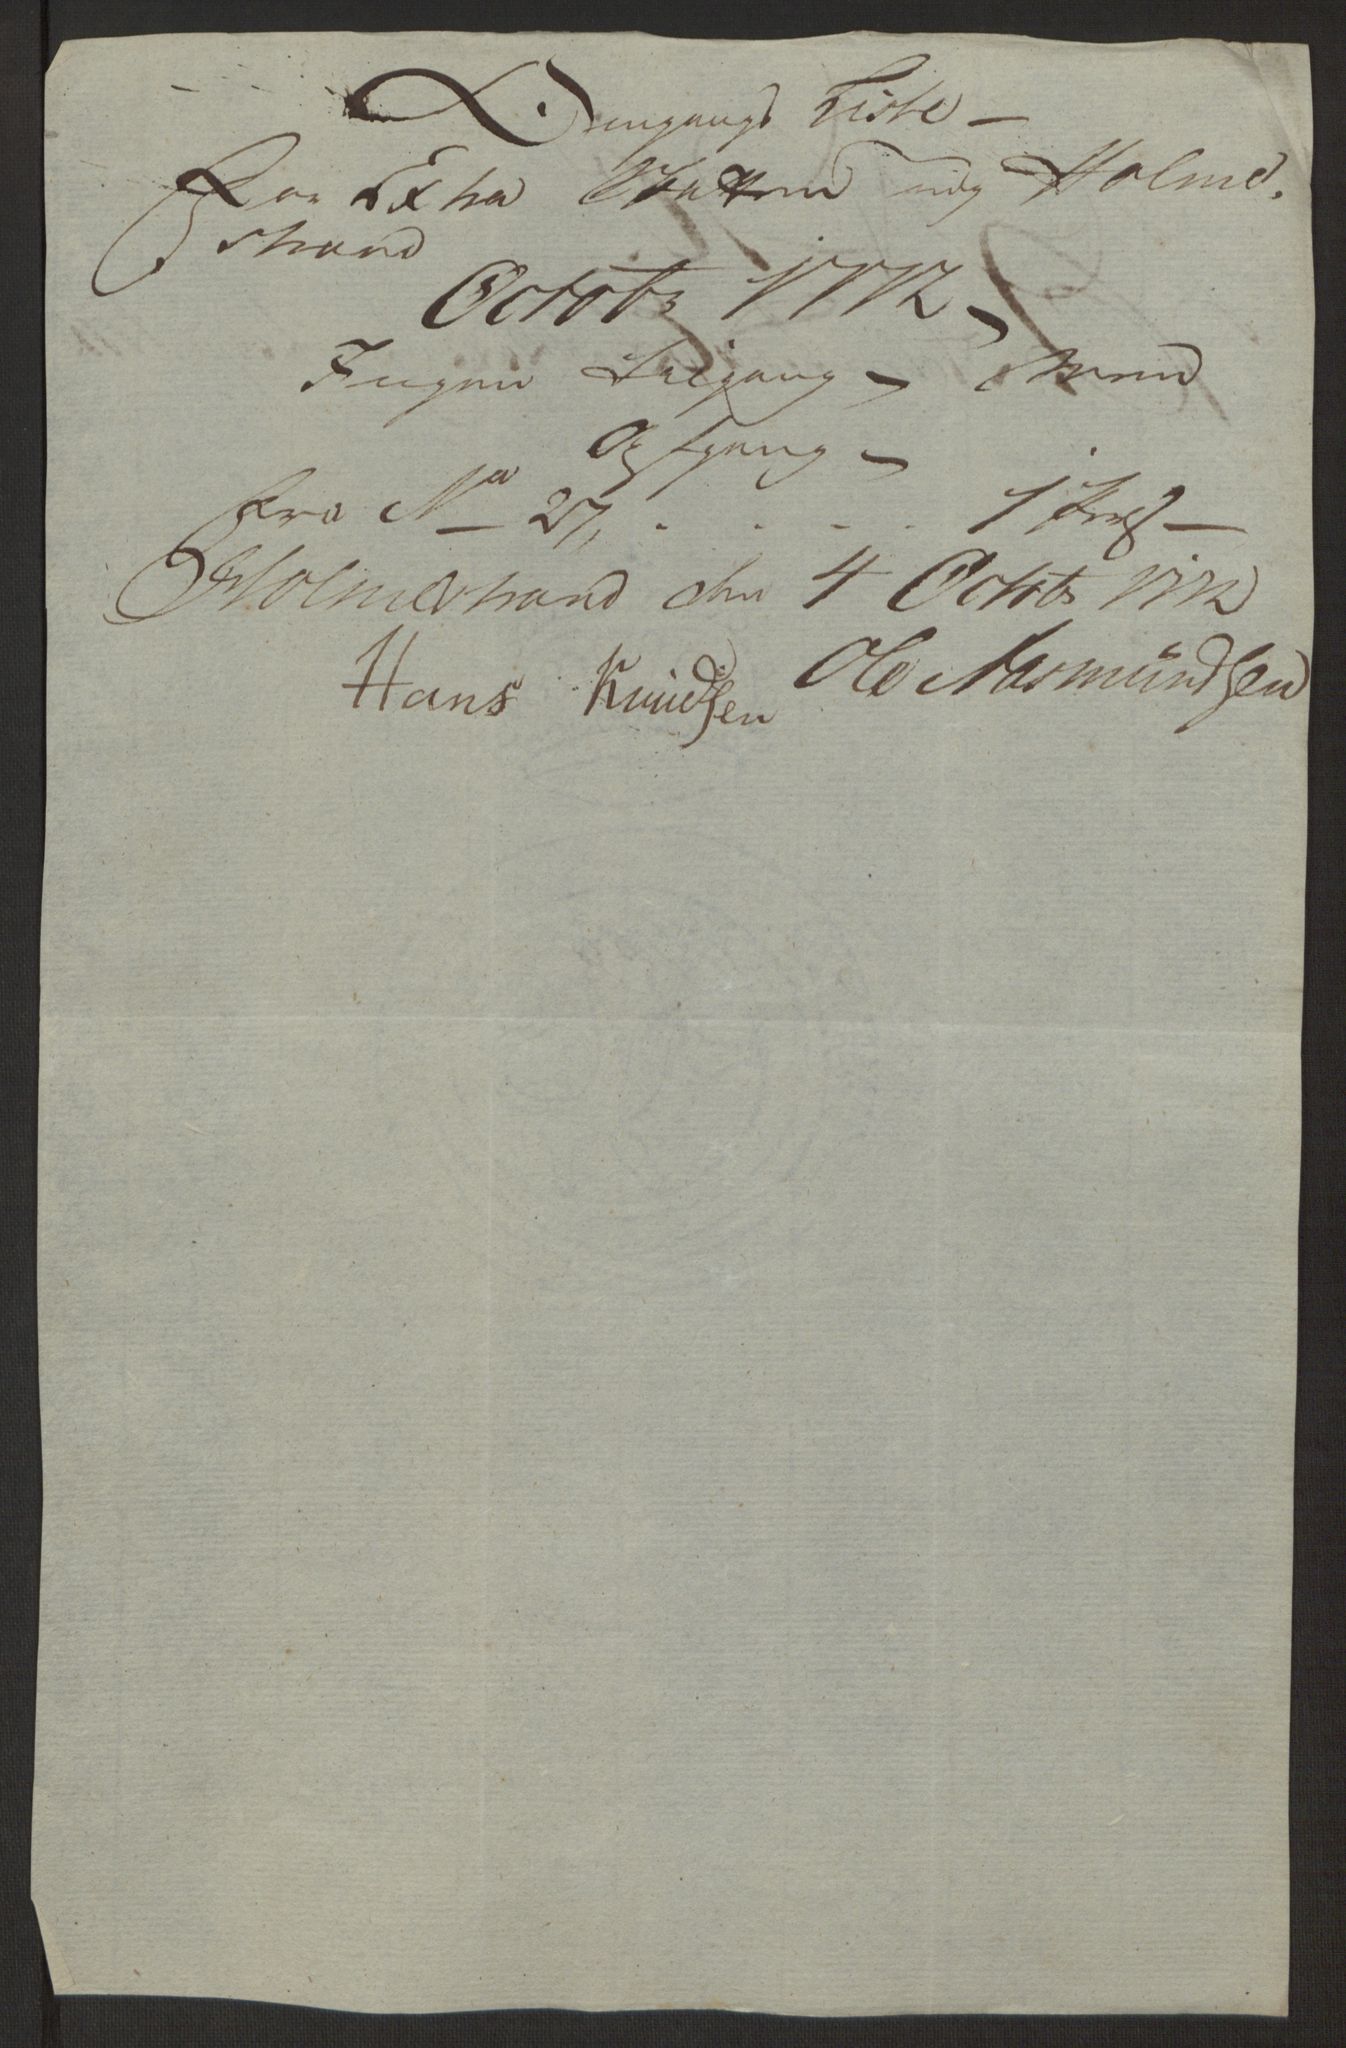 Afgangs Liste –
For Extra Skatten udj Holme-
strand
Octobr 1772 –
Ingen Tilgang – Mend
Afgang –
Fra No 27, . . . . 1 Pers –
Holmestrand den 4 Octobr 1772
Hans Knudsen Ole Rasmündsen